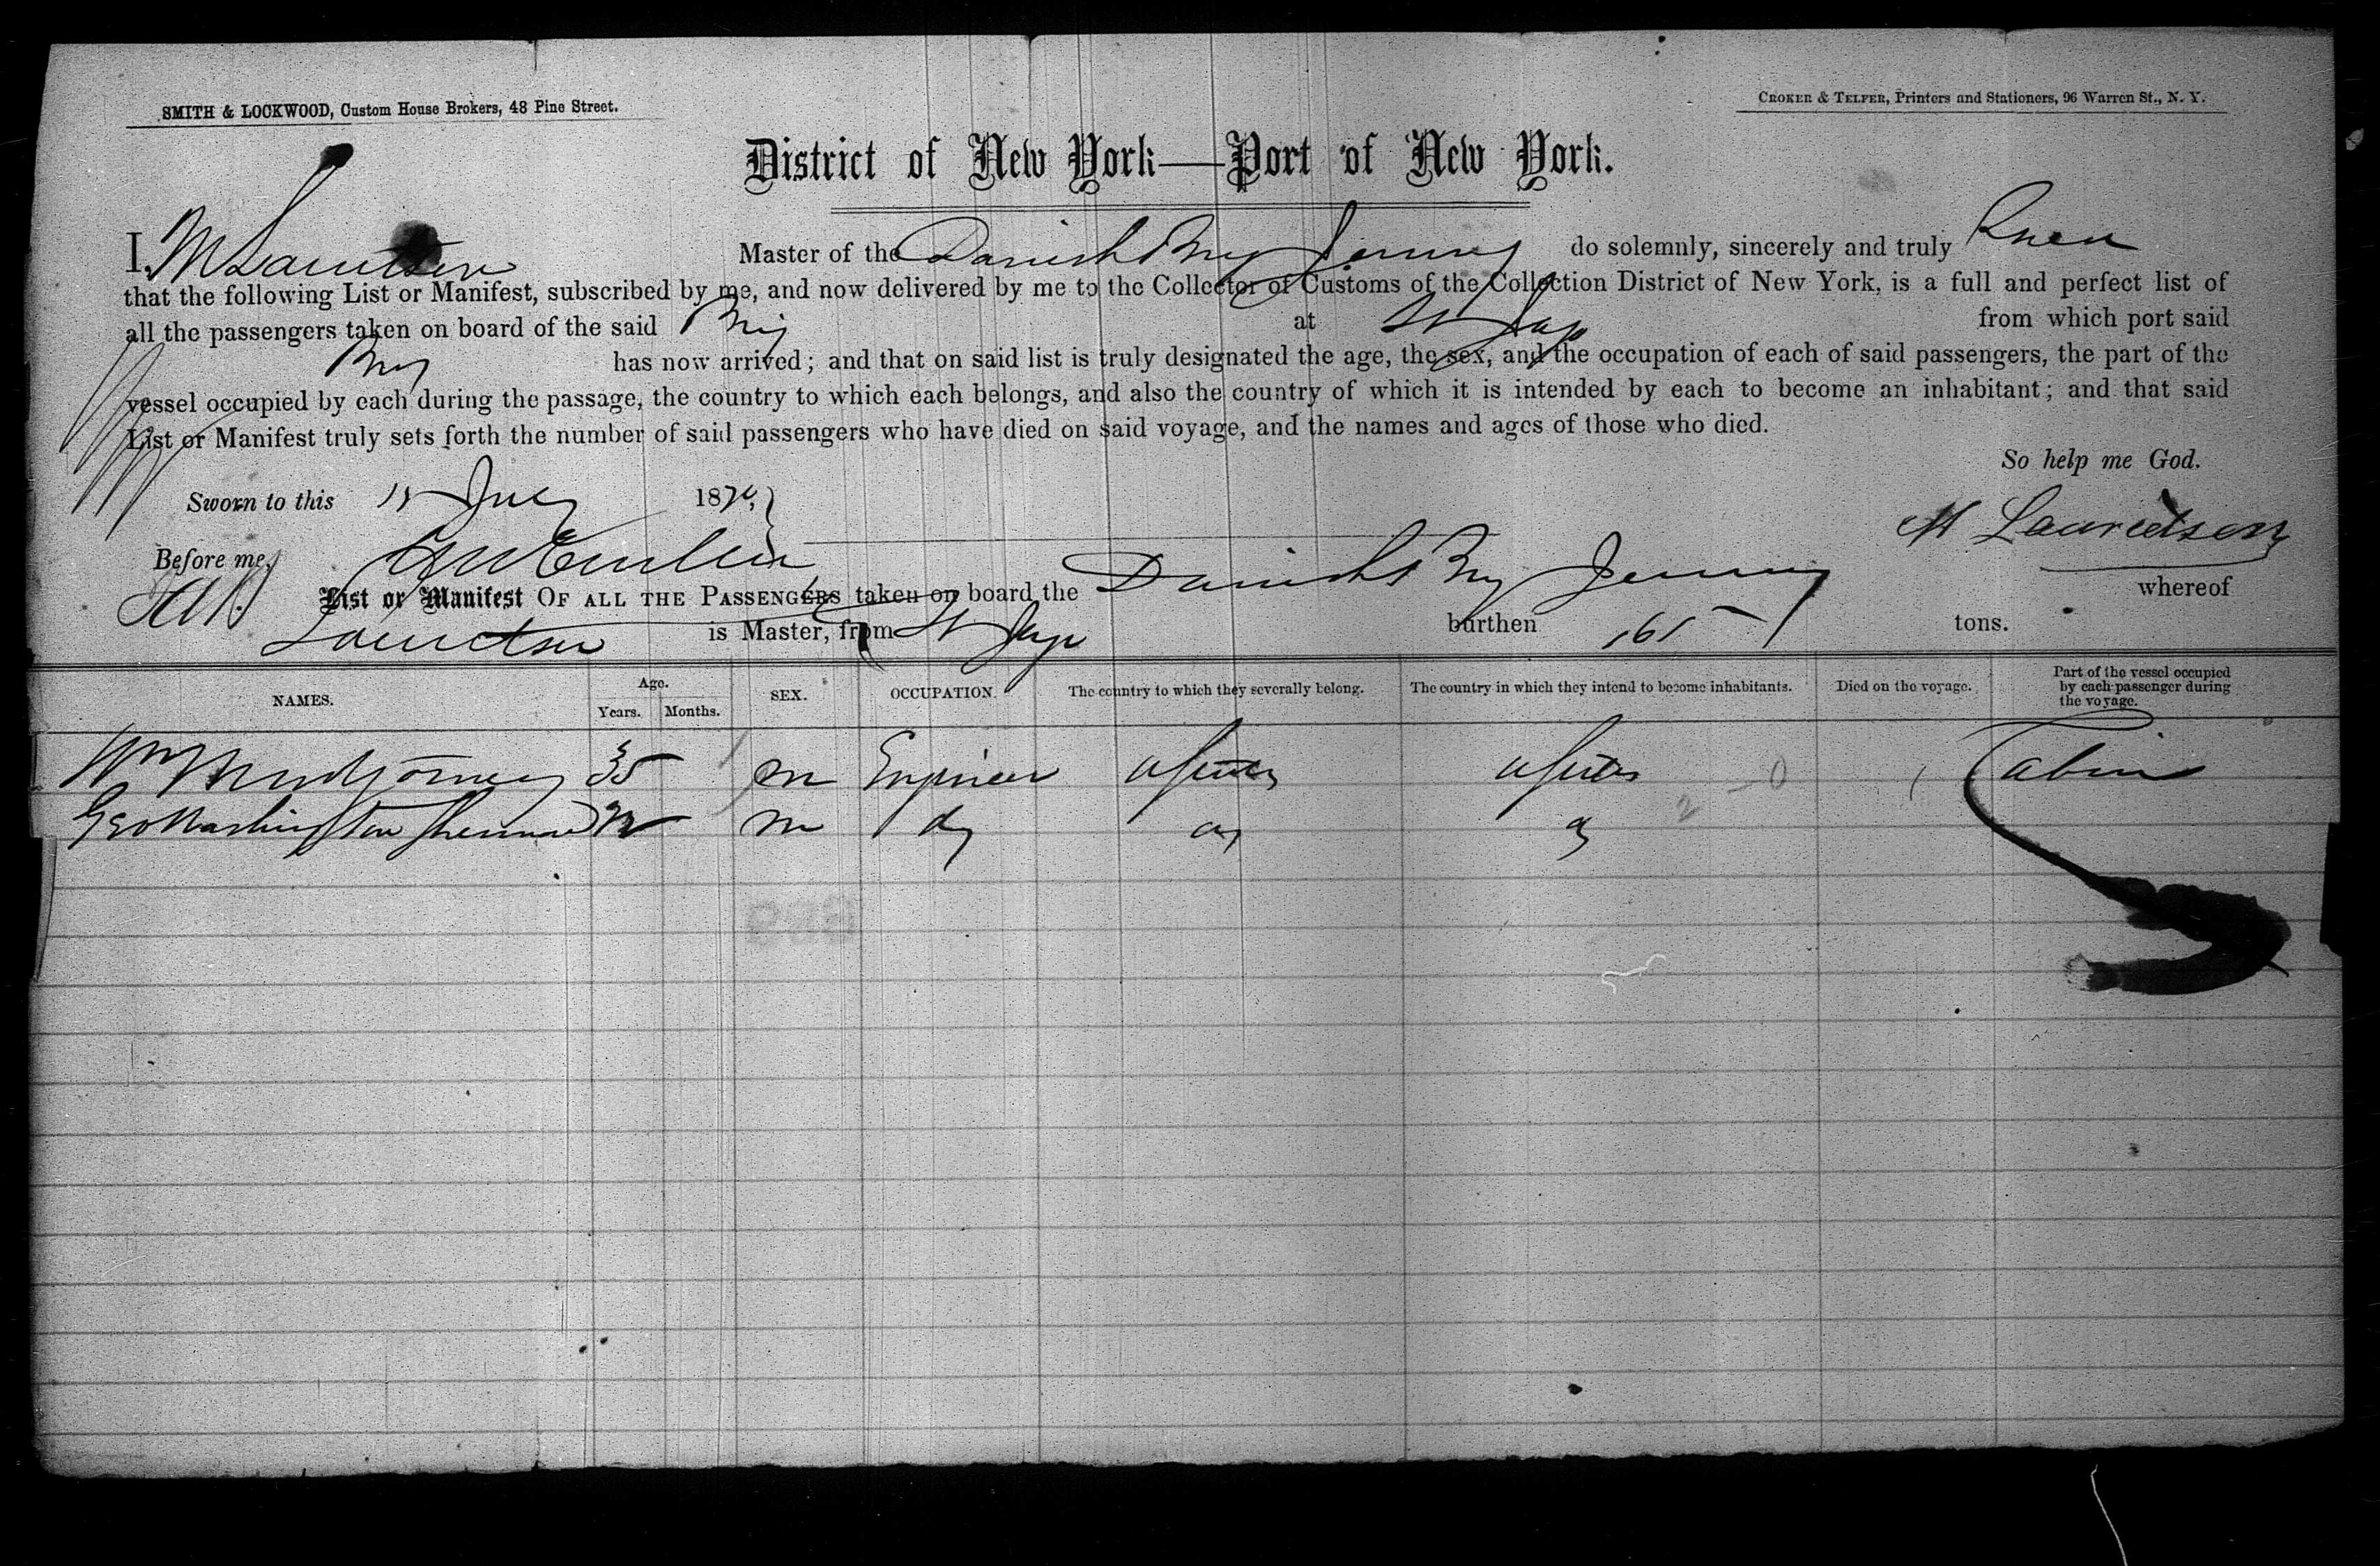 SMITH & LOCKWOOD, Custom House Brokers, 48 Pine Street.
CROKER & TELFER, Printers and Stationers, 96 Warren St., N. Y.
District of New York—Port of New York.
I, M Lauritsen Master of the Danish Brig Jenny do solemnly, sincerely and truly Swear
that the following List or Manifest, subscribed by me, and now delivered by me to the Collector of Customs of the Collection District of New York, is a full and perfect list of
all the passengers taken on board of the said Brig at St Jago from which port said
Brig has now arrived; and that on said list is truly designated the age, the sex, and the occupation of each of said passengers, the part of the
vessel occupied by each during the passage, the country to which each belongs, and also the country of which it is intended by each to become an inhabitant; and that said
List or Manifest truly sets forth the number of said passengers who have died on said voyage, and the names and ages of those who died.
So help me God.
Sworn to this July 187
M Lauridsen
Before me,
List or Manifest OF ALL THE PASSENGERS taken on board the Danish Brig Jenny whereof
Lauritsen is Master, from St Jago burthen 165 tons.
NAMES. Age. Years. Months. SEX. OCCUPATION. The country to which they severally belong. The country in which they intend to become inhabitants. Died on the voyage. Part of the vessel occupied by each passenger during the voyage.
Wm Montgomery 35 m Engineer U States U States Cabin
Geo Washington m do do do